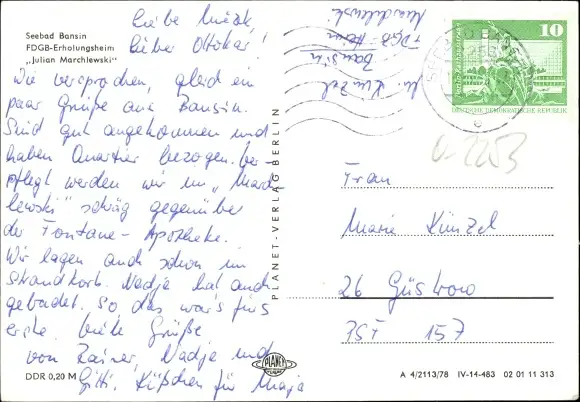 Seebad Bansin
FDGB-Erholungsheim
„Julian Marchlewski"
Liebe
Lieber Ottokar!
Wie versprochen, gleich ein
paar Grüße aus Bansin.
Sind gut angekommen und
haben Quartier bezogen. Ver
pflegt werden wir im „March
lewski" schräg gegenüber
der Fontane-Apotheke.
Wir lagen auch schon im
Strandkorb. Nadja hat auch
gebadet. So, das war's fürs
erste. Viele Grüße
von Rainer, Nadja und
Gitti. Küßchen für Maja
DDR 0,20 M
PLANET-VERLAG BERLIN
PLANET
Künzel
Bansin
FDGB-Heim
Marchlewski
10
DEUTSCHE DEMOKRATISCHE REPUBLIK
Frau
Marie Künzel
26 Güstrow
PSF 157
A 4/2113/78 IV-14-483 02 01 11 313